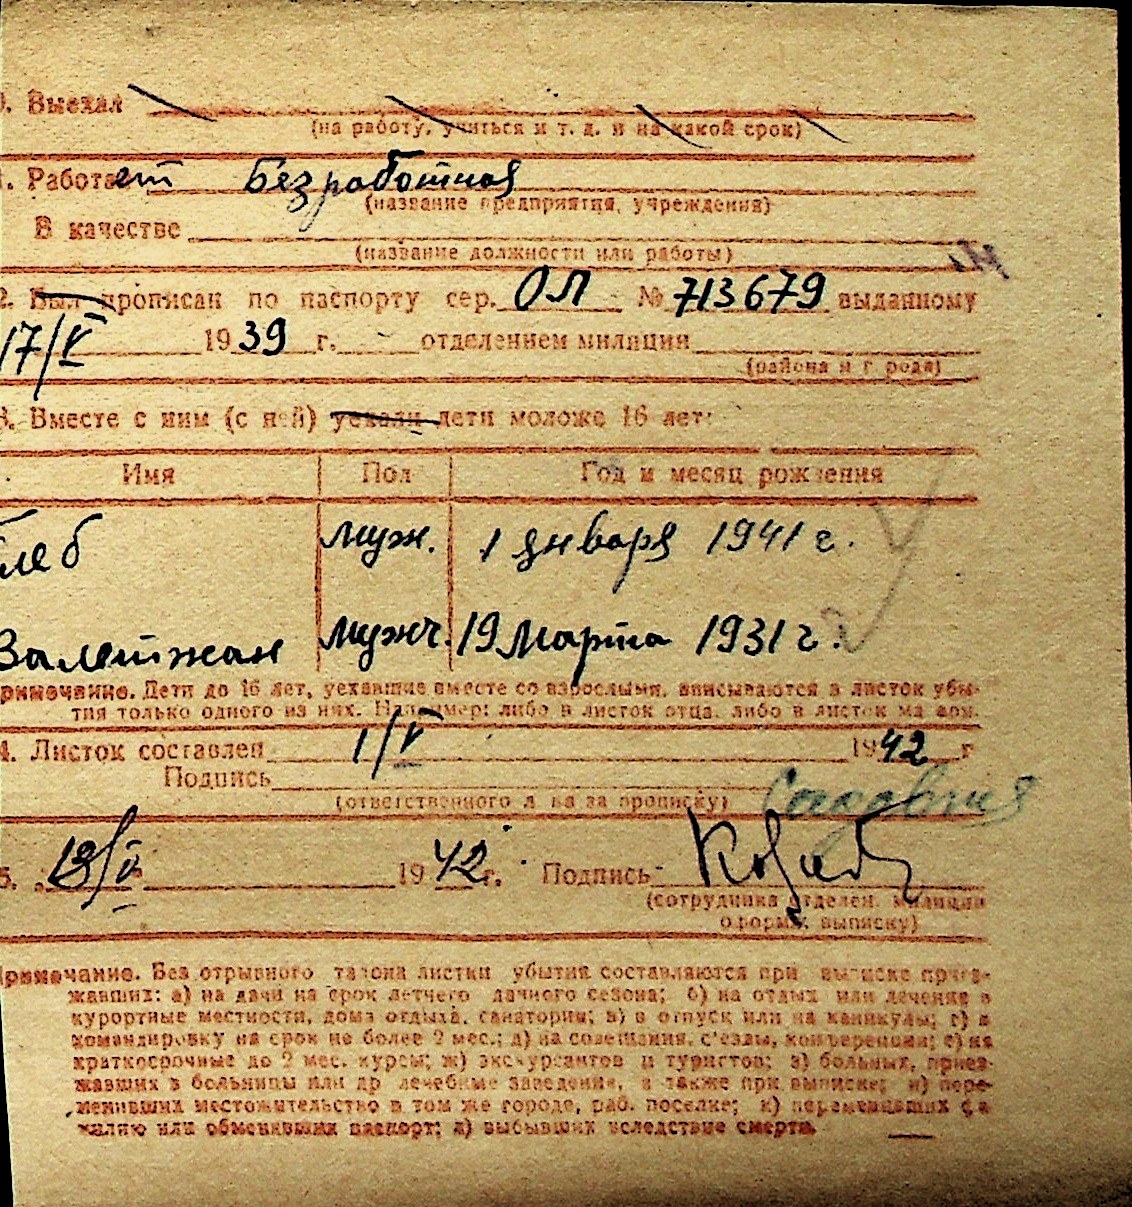 0. Выехал
(на работу, учиться и т. д. и на какой срок)
1. Работает Безработная
(название предприятия, учреждения)
В качестве
(название должности или работы)
2. Был прописан по паспорту сер. ОЛ № 713679 выданному
17/V 1939 г. отделением милиции
(района и города)
3. Вместе с ним (с ней) уехали дети моложе 16 лет:
Имя Пол Год и месяц рождения
Глеб муж. 1 января 1941 г.
мужч. 19 марта 1931 г.
Примечание. Дети до 16 лет, уехавшие вместе со взрослыми, вписываются в листок убы-
тия только одного из них. Например: либо в листок отца, либо в листок матери.
4. Листок составлен 1/V 1942 г
Подпись
(ответственного лица за прописку)
5. 13/V 1942 г. Подпись
(сотрудника отделен. милиции
оформ. выписку)
Примечание. Без отрывного талона листки убытия составляются при выписке приез-
жавших: а) на дачи на срок летнего дачного сезона; б) на отдых или лечение в
курортные местности, дома отдыха, санатории; в) в отпуск или на каникулы; г) в
командировку на срок не более 2 мес.; д) на совещания, с'езды, конференции; е) на
краткосрочные до 2 мес. курсы; ж) экскурсантов и туристов; з) больных, приез-
жавших в больницы или др лечебные заведения, а также при выписке; и) пере-
менивших местожительство в том же городе, раб. поселке; к) переменивших фа-
милию или обменивших паспорт; л) выбывших вследствие смерти.